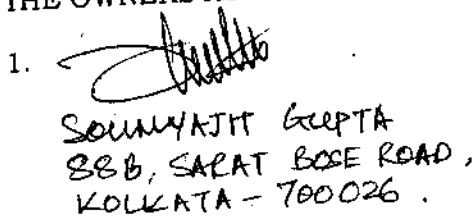 THE OWNERS
1.
SOUMYAJIT GUPTA
88B, SARAT BOSE ROAD,
KOLKATA - 700026.